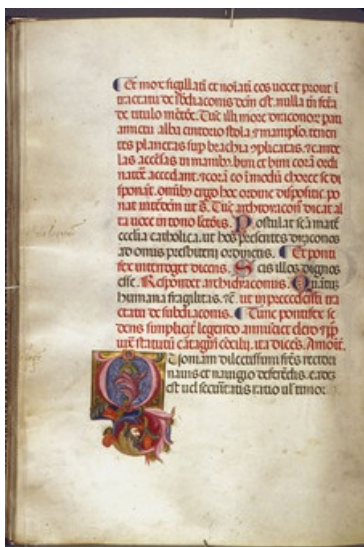 Et mox sigillati et noiati eos vocet prout i
tractatu de sediaconis dem est. nulla tn fca
de titulo mentoe. Tuc illi more diaconor pati
amictu alba cinctorio stola et manipulo. tenen
tes planetas sup brachia
las accesas in manibz. bini et bini cora ordi
natoe accedant. cora in mediu choree se di
sponat. omibz ergo hoc ordine dispositis. po
nat Tuc archidiacon dicat al
ta voce in tono lectois. Postulat sca mat
ecclia catholica. ut hos presentes diacones
ad onus presbiteri ordinetis. Et ponti
fex interroget dicens. Scis illos dignos
esse. Respondet archidiaconus. Quatus
humana fragilitas. ut in precedenti tra
ctatu de subdiaconis. Tunc pontifex se
dens simpliciter legendo annuciet clero et pp
iux statutu cartagin ita dices.
Quoniam dilectissimi fres rectori
navis et navigio deferendis. eadez
est vel securitatis ratio vel timor.